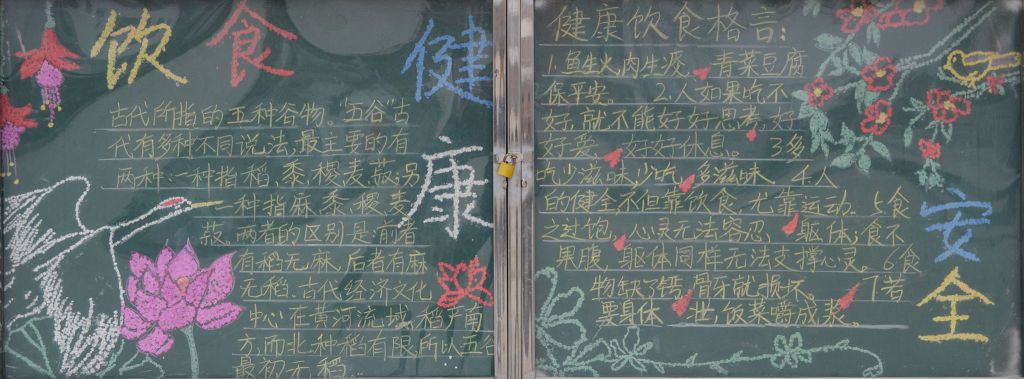 饮食健康
古代所指的五种谷物。"五谷"古
代有多种不同说法,最主要的有
两种:一种指稻、黍、稷、麦、菽;另
一种指麻、黍、稷、麦
菽。两者的区别是:前者
有稻无麻,后者有麻
无稻。古代经济文化
中心在黄河流域,稻
方,而北种稻有限,所以五谷
最初无稻。
健康饮食格言:
1.鱼生火,肉生痰,青菜豆腐
保平安。2.人如果吃不
好,就不能好好思考,好
好爱,好好休息。3多
吃少滋味,少吃多滋味。4.人
的健全,不但靠饮食,尤靠运动。5食
之过饱,心灵无法容忍躯体;食不
果腹,躯体同样无法支撑心灵。6食
物缺了钙,骨牙就损坏。7若
要身体壮,饭菜嚼成浆。
安全